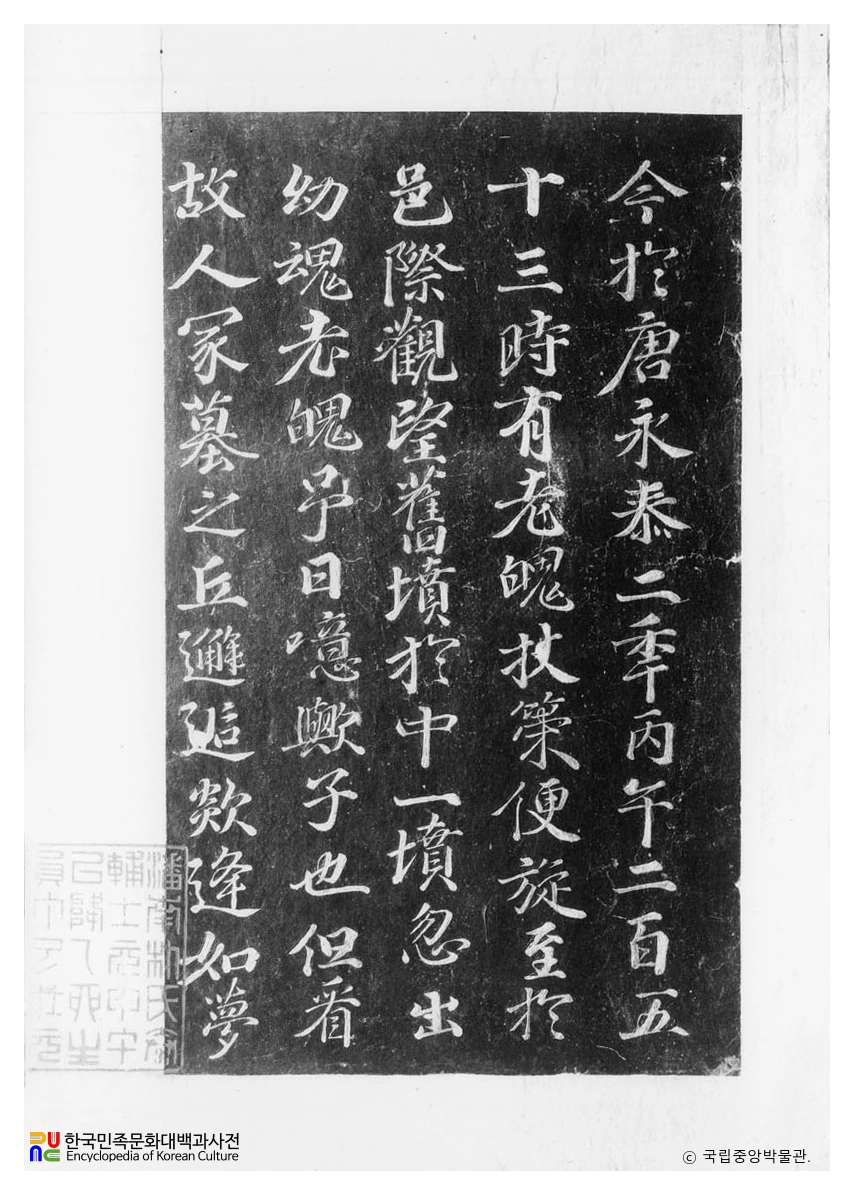 今於唐永泰二秊丙午二百五
十三時有老魄杖策便旋至於
邑際觀望舊墳於中一墳忽出
幼魂老魄弔曰噫歟子也但看
故人冢墓之丘邂逅欻逢如夢
潘南朴氏
한국민족문화대백과사전
Encyclopedia of Korean Culture
ⓒ 국립중앙박물관.